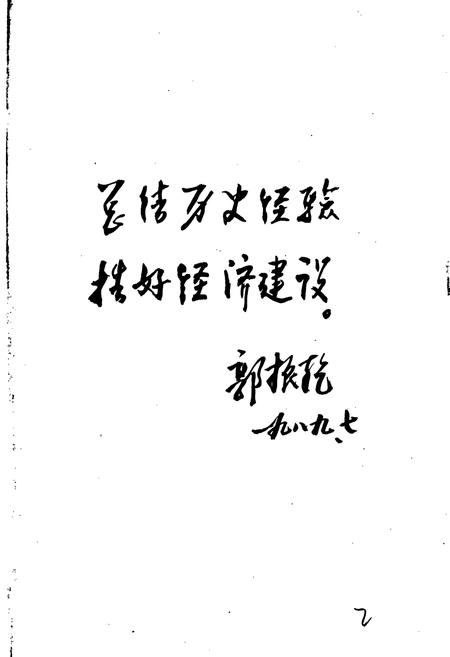 总结历史经验
搞好经济建设。
郭振乾
一九八九、七
2